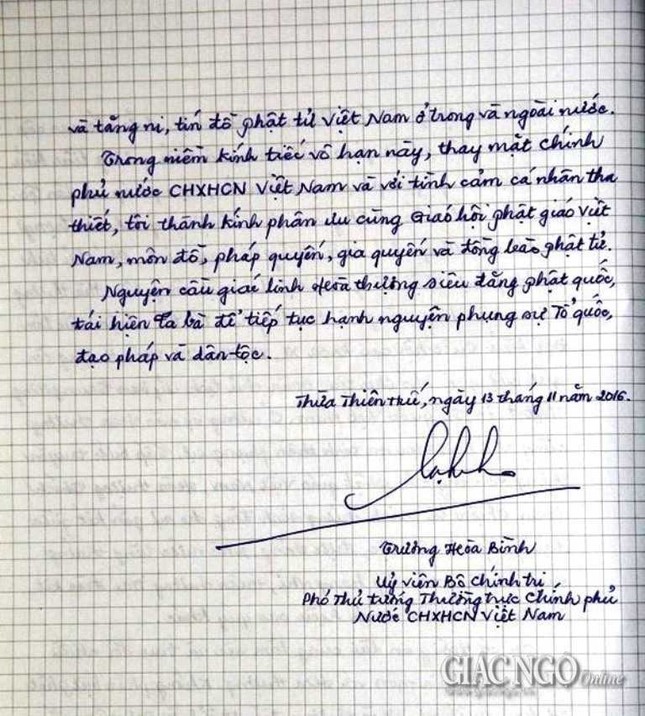 và tăng ni, tín đồ phật tử Việt Nam ở trong và ngoài nước.
Trong niềm kính tiếc vô hạn này, thay mặt chính
phủ nước CHXHCN Việt Nam và với tình cảm cá nhân tha
thiết, tôi thành kính phân ưu cùng Giáo hội phật giáo Việt
Nam, môn đồ, pháp quyến, gia quyến và đồng bào phật tử.
Nguyện cầu giác linh Hoà thượng siêu đăng phật quốc,
tái hiện Ta bà để tiếp tục hạnh nguyện phụng sự Tổ quốc,
đạo pháp và dân tộc.
Thừa Thiên Huế, ngày 13 tháng 11 năm 2016.
Trương Hoà Bình
Uỷ viên Bộ chính trị
Phó Thủ tướng Thường trực Chính phủ
Nước CHXHCN Việt Nam
GIÁC NGỘ Online